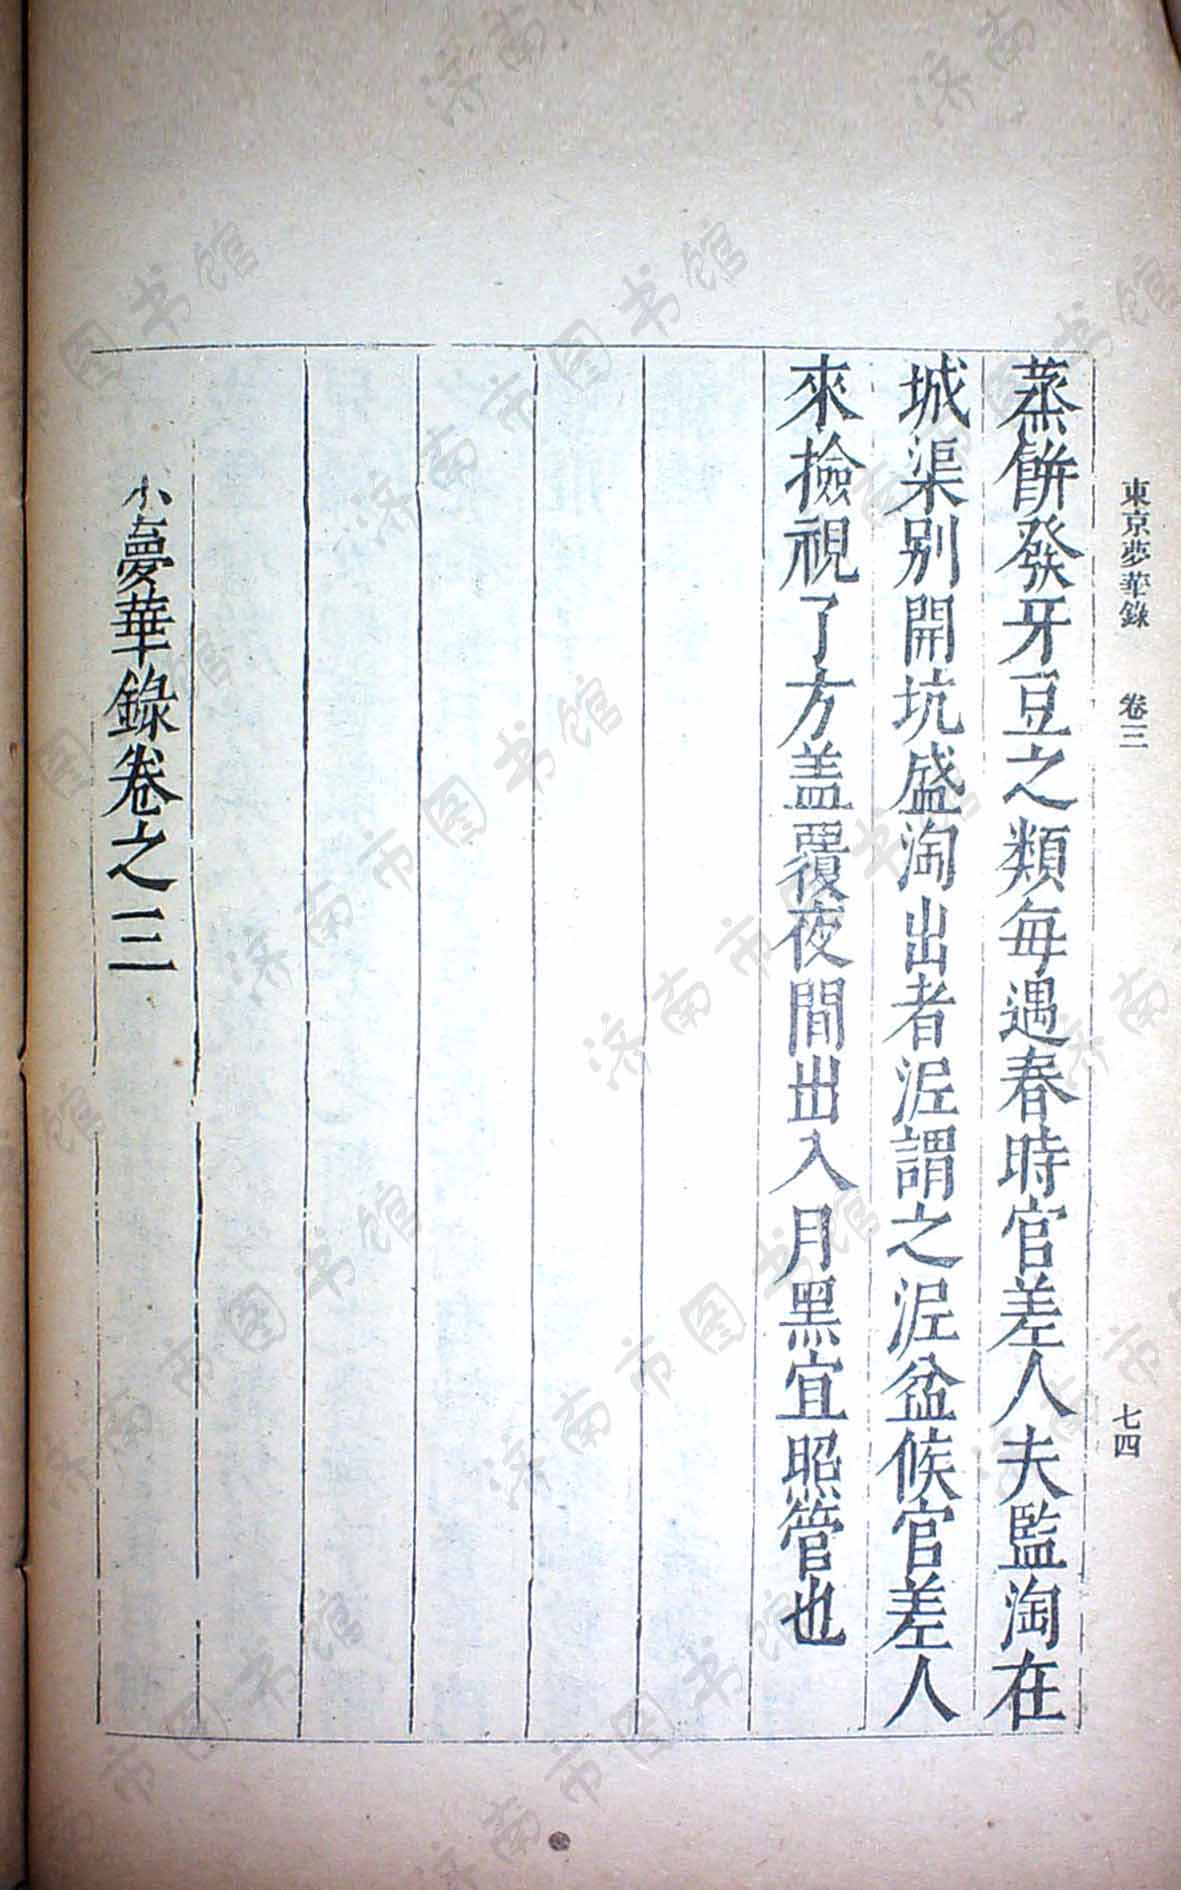 東京夢華錄　卷三　七四
蒸餅發牙豆之類每遇春時官差人夫監淘在
城渠别開坑盛淘出者泥謂之泥盆候官差人
來撿視了方盖覆夜間出入月黑宜照管也
夢華錄卷之三
济南市图书馆